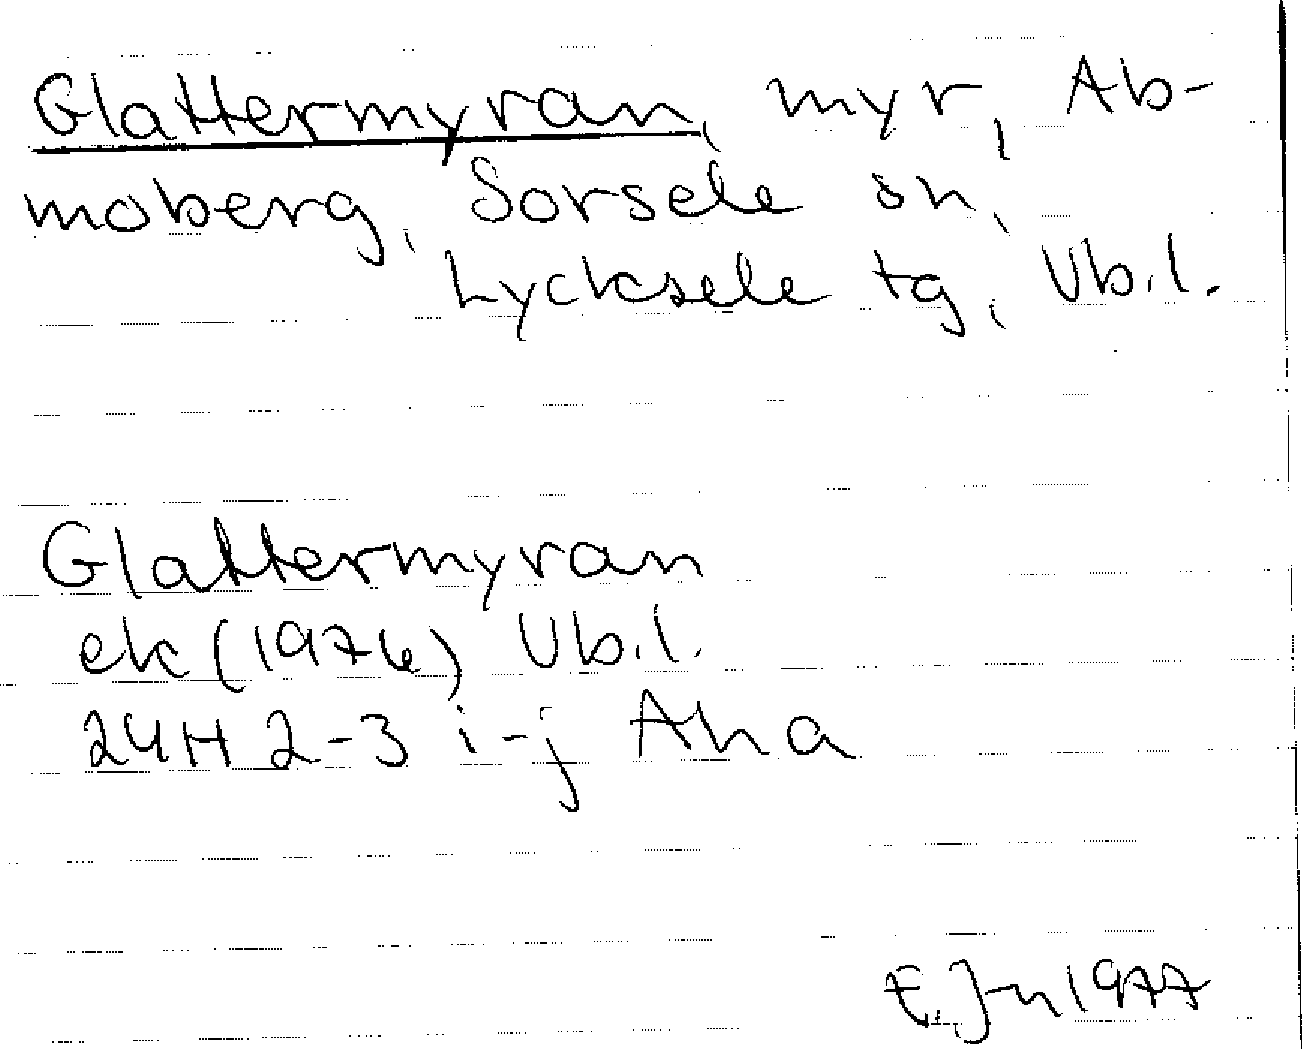 Glattermyran, myr, Ab-
moberg, Sorsele sn,
Lycksele tg, Vb.l.
Glattermyran
ek (1976) Vb.l.
24H 2-3 i-j Aha
E.Jn 1977